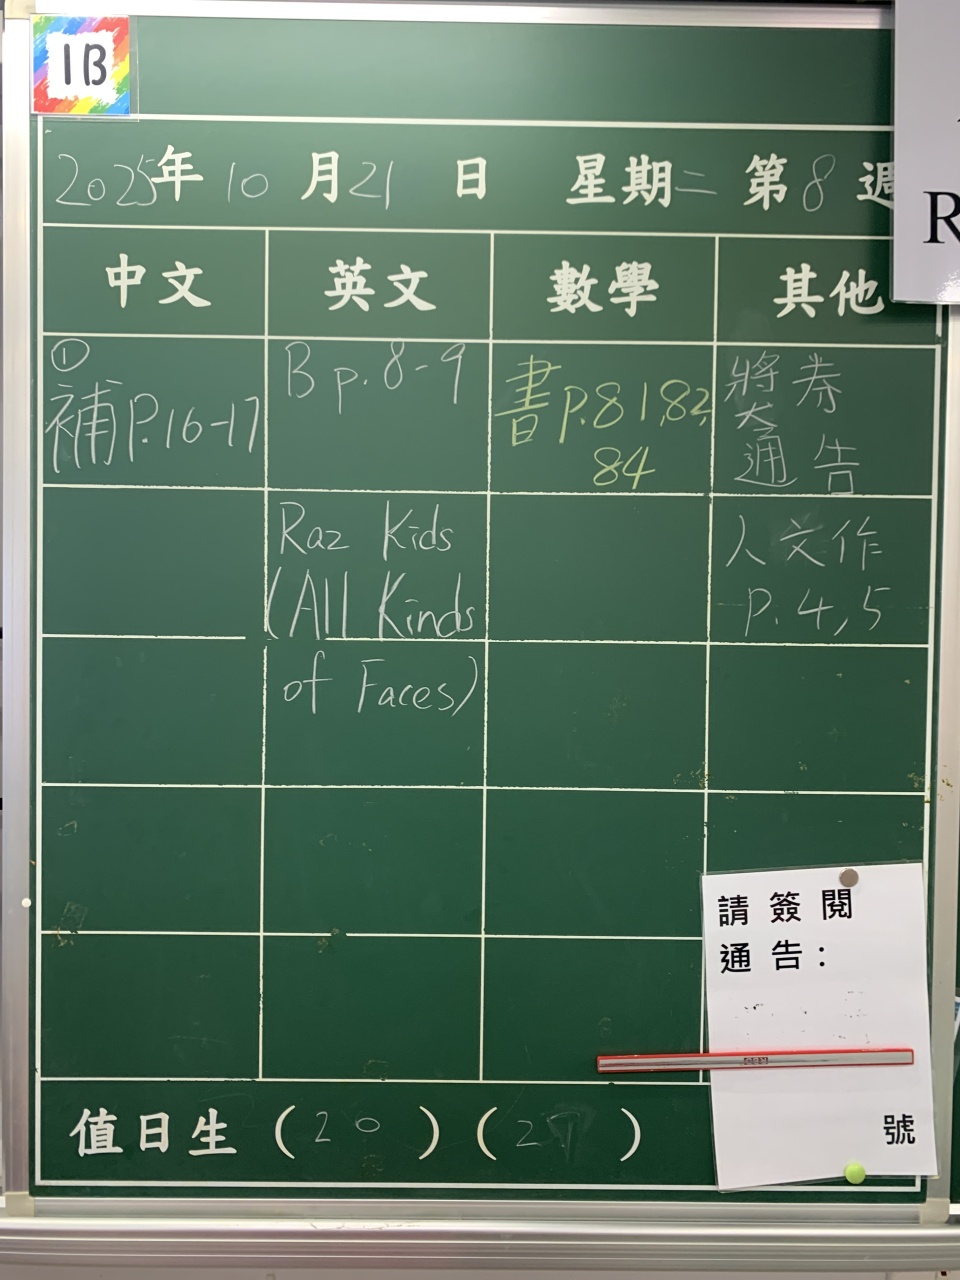 1B
2025年 10月21日 星期二 第8週
R
中文 英文 數學 其他
① 
補P.16-17
B p.8-9
書P.81,82,
84
獎券
通告
Raz Kids
(All Kinds
of Faces)
人文作
P.4,5
請簽閱
通告：
號
值日生 (20) (27)